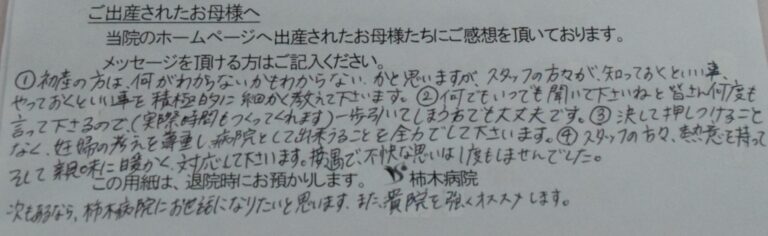 ご出産されたお母様へ
当院のホームページへ出産されたお母様たちにご感想を頂いております。
メッセージを頂ける方はご記入ください。
①初産の方は、何がわからないかもわからない、かと思いますが、スタッフの方々が、知っておくといい事、
やっておくといい事を積極的に細かく教えて下さいます。②何でもいつでも聞いて下さいねと皆さん何度も
言って下さるので、(実際時間もつくってくれます)一歩引いてしまう方でも大丈夫です。③決して押しつけること
なく、妊婦の考えを尊重し、病院として出来うることを全力でして下さいます。④スタッフの方々、熱意を持って
そして親身に暖かく、対応して下さいます。待遇で、不快な思いは1度もしませんでした。
この用紙は、退院時にお預かりします。 柿木病院
次もあるなら、柿木病院にお世話になりたいと思います。また、貴院を強くオススメします。